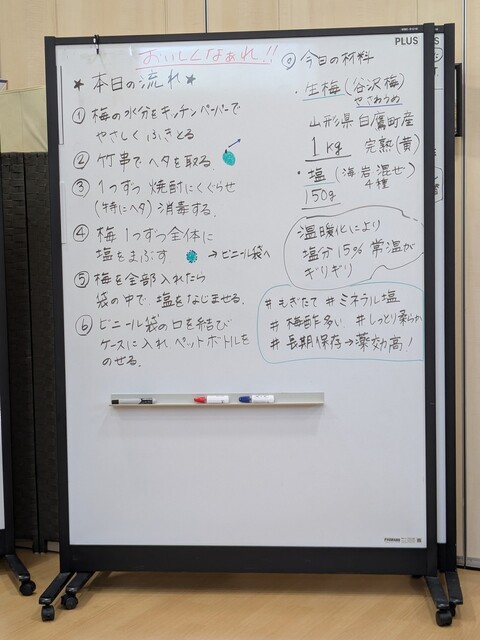 PLUS
おいしくなぁれ!!
★本日の流れ★
① 梅の水分をキッチンペーパーで
やさしくふきとる
② 竹串でヘタを取る.
③ 1つずつ 焼酎にくぐらせ
(特にヘタ) 消毒する.
④ 梅1つずつ全体に
塩をまぶす → ビニール袋へ
⑤ 梅を全部入れたら
袋の中で、塩をなじませる.
⑥ ビニール袋の口を結び
ケースに入れ ペットボトルを
のせる.
◎ 今日の材料
・生梅 (谷沢梅)
やさわうめ
山形県 白鷹町産
1kg 完熟 (黄)
・塩 (海岩混ぜ)
4種
150g
温暖化により
塩分15% 常温が
ギリギリ
# もぎたて # ミネラル塩
# 梅酢多い # しっとり柔らか
# 長期保存→薬効高!